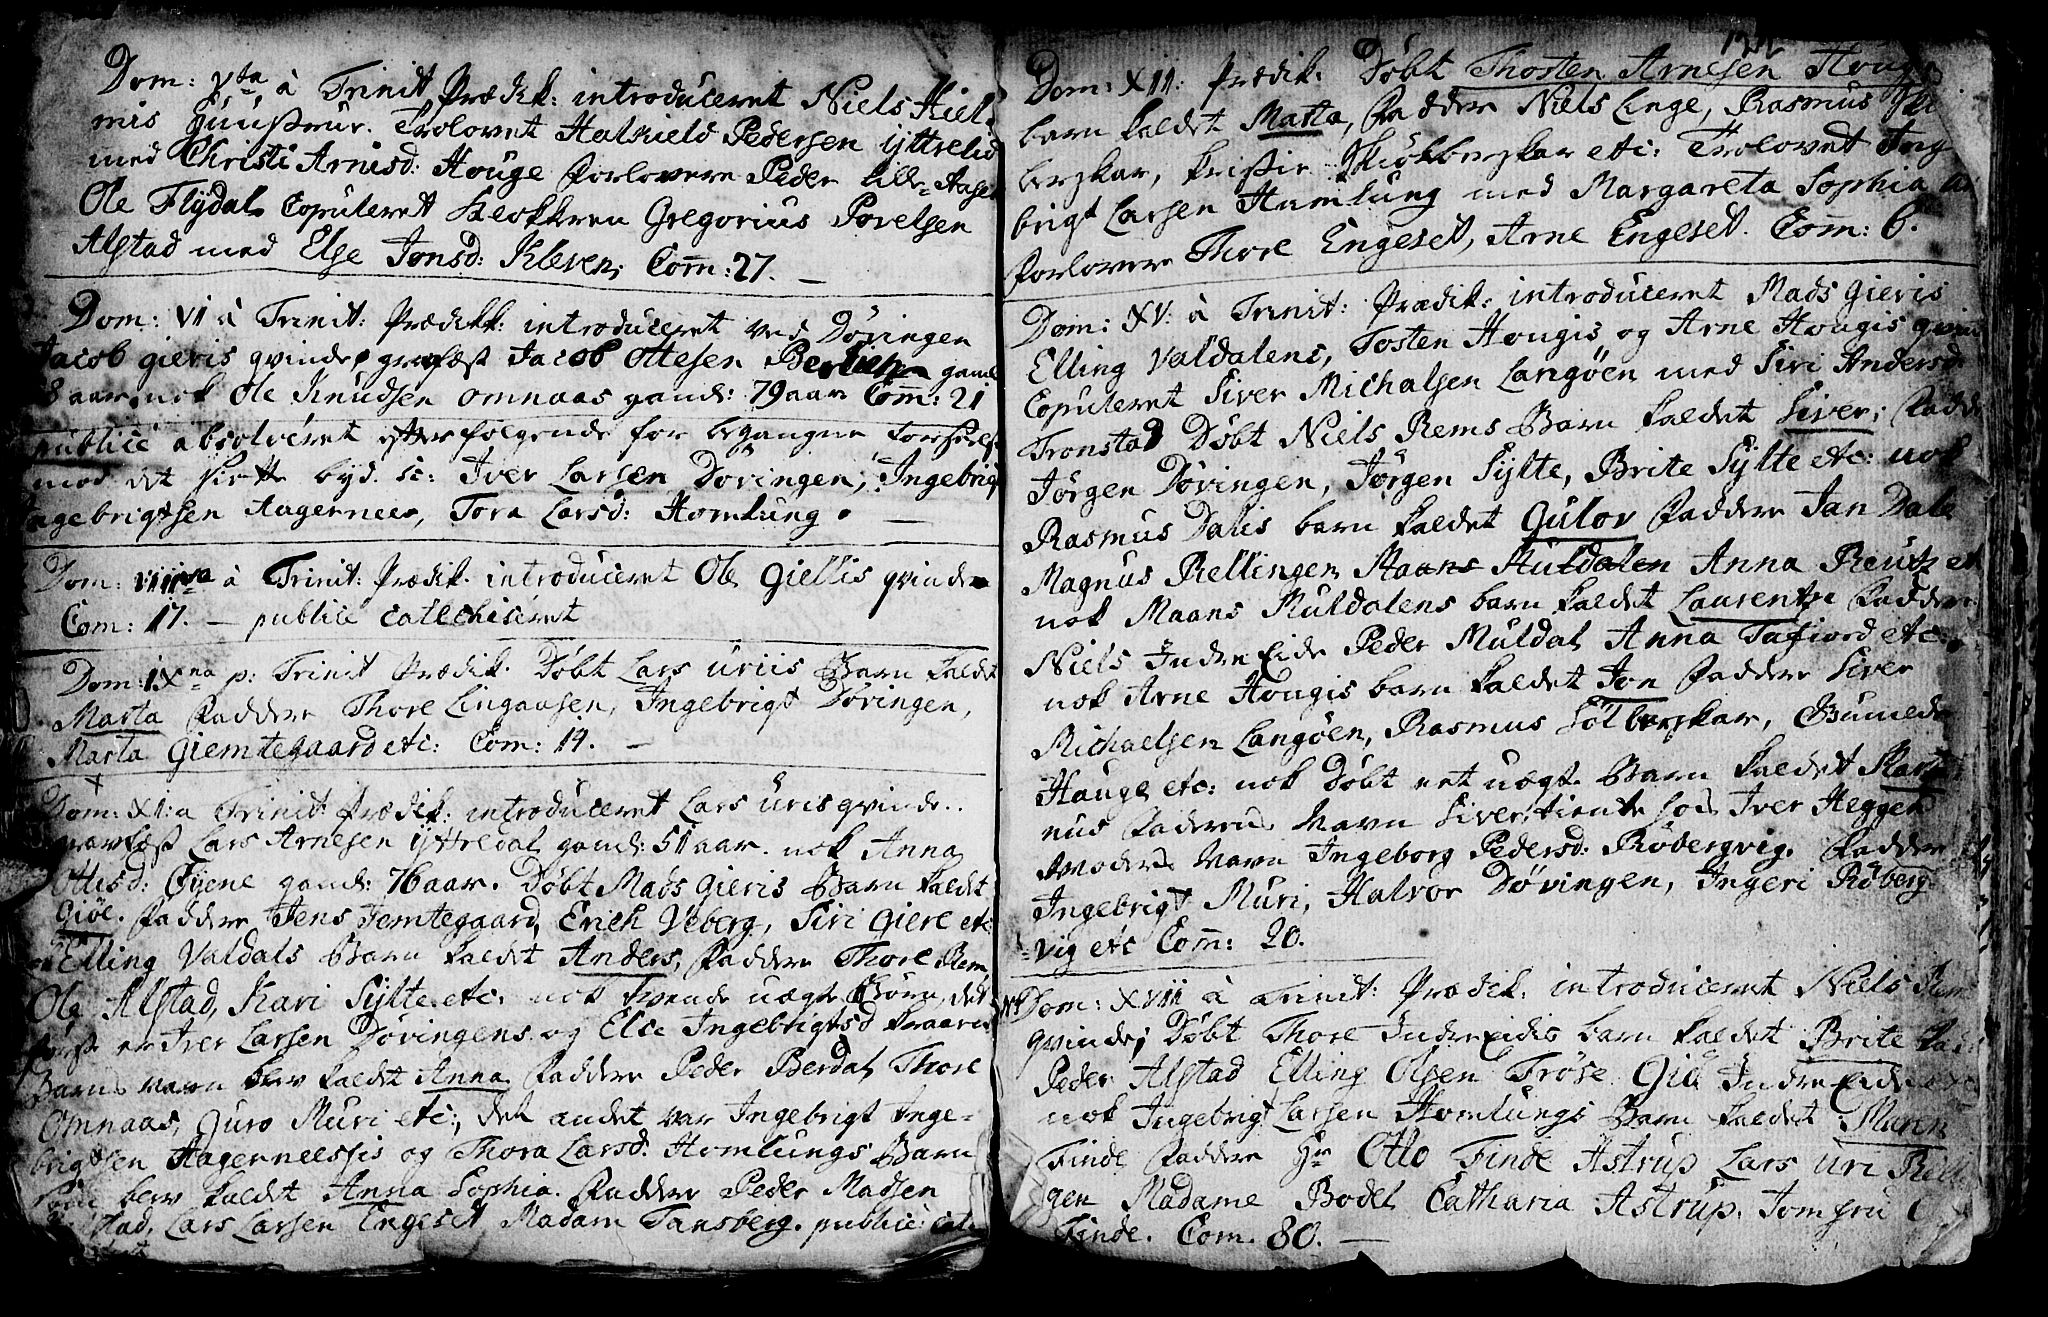 Dom: Vta à Trinit Prædik: introduceret Niels Kiel-
mis Hunstrue. Troloved Halkield Pedersen ÿttrelid
med Christi Arnisd: Houge Forlovere Peder Lille-Aase
Ole Flydal. Copuleret Klokkren Gregorius Povelsen
Alstad med Else Jonsd: Kleven; Com̄: 27. —
Dom: VI à Trinit: Prædikk: introduceret ved Döringen
Jacob gieris qvinde, grafæst Jacob Ottesen gaml
8 aar, nok Ole Knudsen Omnaas gaml: 79 aar Com̄: 21
publice absolveret efterfolgende for begangne
mod det siette byd. sc: Iver Larsen Döringen, Ingebrigt
Ingebrigtsen Aagernees, Tora Larsd: Homlung. —
Dom: VIIIva à Trinit: Prædik. introduceret Ole giellis qvinde
Com: 17. — publice catechiseret
Dom: IXna p: Trinit Prædik. Döbt Lars uriis Barn kaldet
Marta Faddere Thore Lingaasen, Ingebrigt Döringen,
Marta Giemtegaard etc: Com: 19. —
Dom: XI: a Trinit: Prædik: introduceret Lars uris qvinde.
gravfæst Lars Arnesen ÿttredal gaml: 51 aar. nok Anna
Ottisd: Öÿene gaml: 76 aar. Döbt Mads gieris Barn kaldet
Giöe. Faddere Jens Jemtegaard, Erich Veberg, Siri Giere etc
nok Elling Valdals Barn kaldet Anders, Faddere Thore Rem,
Ole Alstad, Kari Sylte etc. nok tvende uægte Börn, det
först er Iver Larsen Dövingens og Else Ingebrigtsd
Barns navn blev kaldet Anna Faddere Peder Berdal, Thore
Omnaas, Guro Muri etc:, det andet var Ingebrigt Inge-
brigtsen Aagerneessis og Thora Larsd: Homlungs Barn
som blev kaldet Anna Sophia. Faddere Peder Madsen
Alstad, Lars Larsen Engeset Madam Tansberg. publice cate
Dom: XII: Prædik. Döbt Thosten Arnesen Houg
barn kaldet Marta, Faddere Niels Linge, Rasmus
berskar, Kristie Skiötberskar etc: Troloved Inge
brigt Larsen Humlung med Margareta Sophia
Forlovere Thore Engeset, Arne Engeset. Com̄: 6.
Dom: XV: à Trinit: Prædik: introduceret Mads gieris
Elling Valdalens, Tosten Hougis, og Arne Hougis qvin
Copuleret Siver Michalsen Langöen med Siri Andersd
Tronstad Döbt Niels Rems Barn kaldet Siver; Fadde
Jörgen Dövingen, Jörgen Sylte, Brite Sylte etc: nok
Rasmus Dalis barn kaldet Gulov Faddere Jan Dale
Magnus Rellingen Maans Muldalen Anna Reutz et
nok Maans Muldalens barn kaldet Laurentze Faddere
Niels Indre Eide Peder Muldal Anna Tafiord etc.
nok Arne Hougis barn kaldet Jon Faddere Siver
Michaelsen Langöen, Rasmus Sölberskar, Gumede
Hauge etc: nok Döbt eet uægte Barn kaldet
nus Faderens Navn Siver, tiente hos Iver Heggen
Moders Navn Ingeborg Pedersd: Röbergvig. Fadder
Ingebrigt Muri, Halvor Dövingen, Ingeri Röberg-
-vig etc Com̄: 20.
Dom: XVII à Trinit: Prædik: introduceret Niels Rem
qvinde; Döbt Thore Indre Eidis barn kaldet Brite
Peder Alstad Elling Olsen Tröse Giö Indre Eide
nok Ingebrigt Larsen Homlungs Barn kaldet Maren
Finde Faddere Hr Otto Finde Astrup Lars uri Rellin
gen Madame Bodel Catharia Astrup. Jomfru
Finde. Com. 80. —